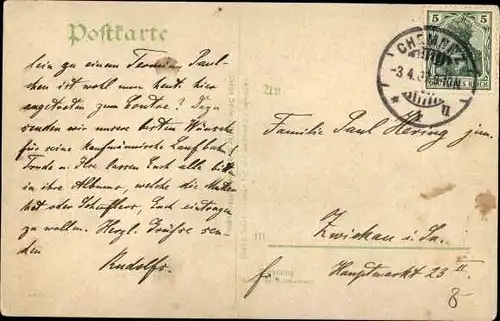 Postkarte
sein zu einem Termin Paul-
chen ist wohl nun heute hier
angetreten zum Contor? Dazu
senden wir unsere besten Wünsche
für seine kaufmännische Laufbahn!
Trude u. Ilse lassen Euch alle bitten
in ihre Albums, welche die
hat oder, Euch eintragen
zu wollen. Herzl. Grüsse sen
den
Rudolfs.
An
Familie Paul Hering jun.
Zwickau i. Sa.
fr. Hauptmarkt 23 II.
8-
CHEMNITZ
-3.4.
5 5
DEUTSCHES REICH